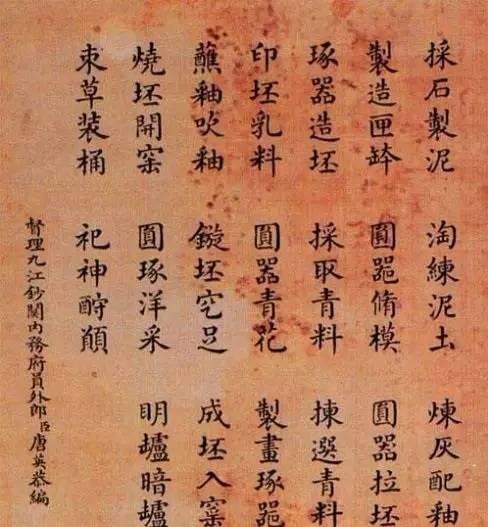 採石製泥 淘練泥土 煉灰配釉
製造匣缽 圓器脩模 圓器拉坯
琢器造坯 採取青料 揀選青料
印坯乳料 圓器青花 製畫琢器
蘸釉吹釉 鏇坯空足 成坯入窯
燒坯開窯 圓琢洋采 明爐暗爐
束草装桶 祀神酧願
督理九江鈔關內務府員外郎臣唐英恭編